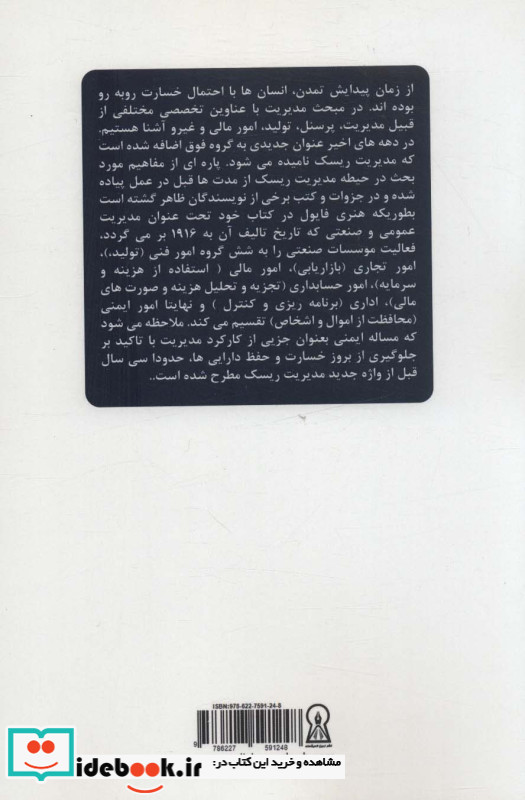 از زمان پیدایش تمدن، انسان ها با احتمال خسارت روبه رو
بوده اند. در مبحث مدیریت با عناوین تخصصی مختلفی از
قبیل مدیریت، پرسنل، تولید، امور مالی و غیرو آشنا هستیم.
در دهه های اخیر عنوان جدیدی به گروه فوق اضافه شده است
که مدیریت ریسک نامیده می شود. پاره ای از مفاهیم مورد
بحث در حیطه مدیریت ریسک از مدت ها قبل در عمل پیاده
شده و در جزوات و کتب برخی از نویسندگان ظاهر گشته است
بطوریکه هنری فایول در کتاب خود تحت عنوان مدیریت
عمومی و صنعتی که تاریخ تالیف آن به ۱۹۱۶ بر می گردد،
فعالیت موسسات صنعتی را به شش گروه امور فنی (تولید،)،
امور تجاری (بازاریابی)، امور مالی ( استفاده از هزینه و
سرمایه)، امور حسابداری (تجزیه و تحلیل هزینه و صورت های
مالی)، اداری (برنامه ریزی و کنترل ) و نهایتا امور ایمنی
(محافظت از اموال و اشخاص) تقسیم می کند. ملاحظه می شود
که مساله ایمنی بعنوان جزیی از کارکرد مدیریت با تاکید بر
جلوگیری از بروز خسارت و حفظ دارایی ها، حدودا سی سال
قبل از واژه جدید مدیریت ریسک مطرح شده است..
ISBN:978-622-7591-24-8
9 786227 591248
مشاهده و خرید این کتاب در:
idebook.ir